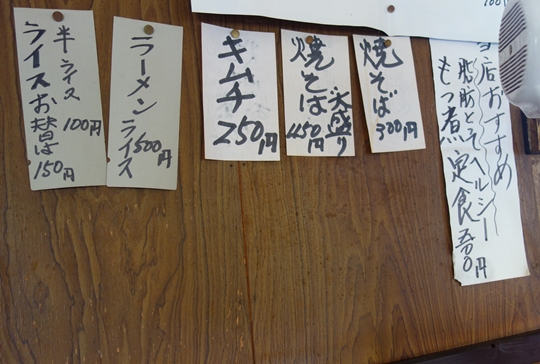 当店おすすめ
脂肪とってヘルシー
もつ煮定食 五〇〇円
焼そば
300円
焼そば 大盛り
450円
キムチ
250円
ラーメンライス
500円
半ライス 100円
ライスお替は 150円
100円